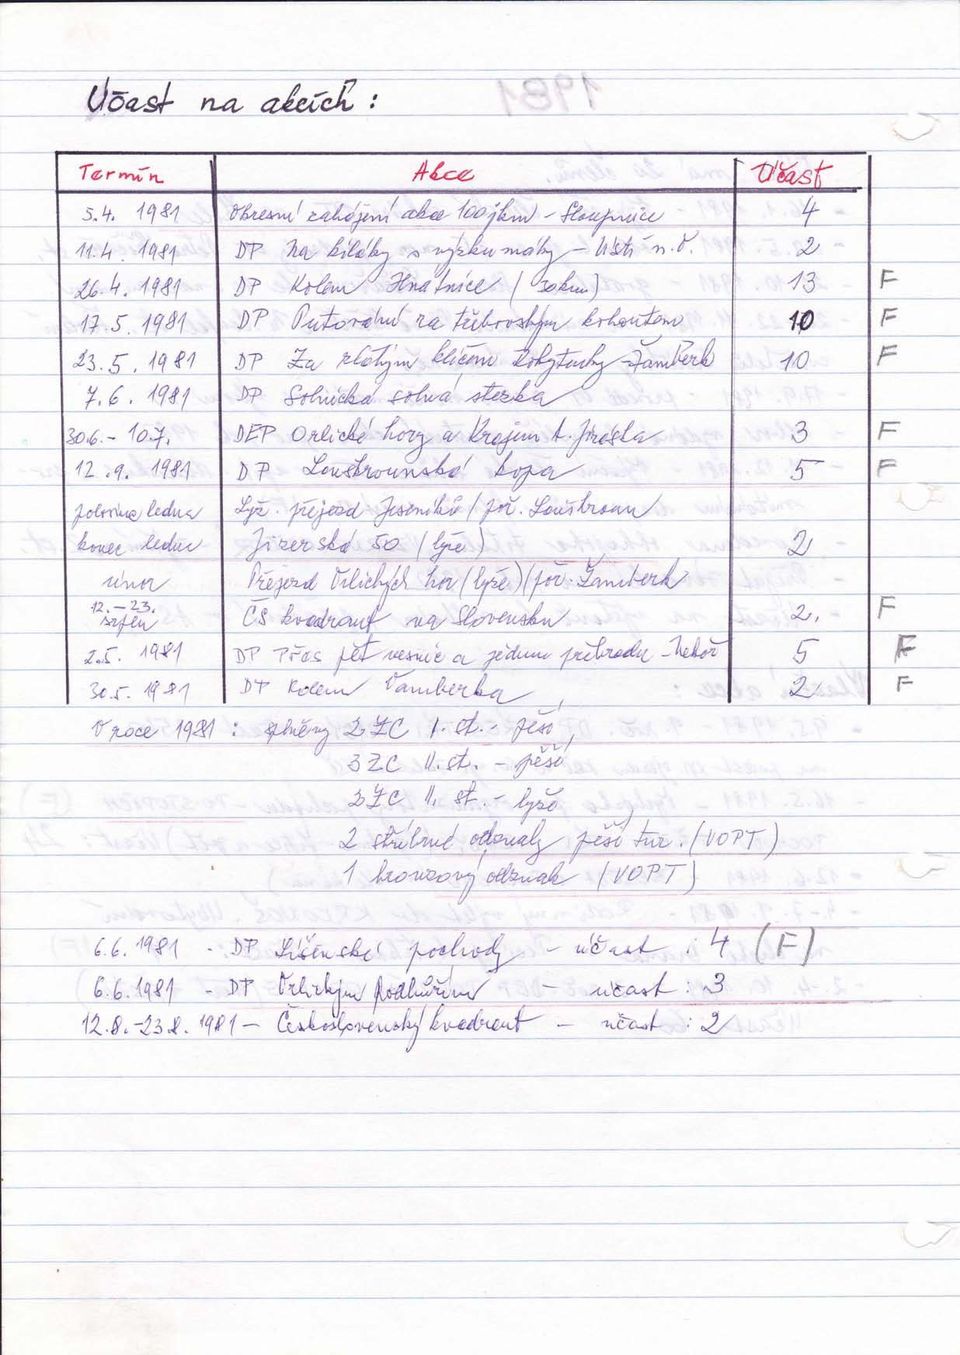 Účast na akcích :
Termín Akce Účast
5.4. 1981 Okresní zahájení akce 100 jkm – Sloupnice 4
11.4. 1981 DP Na kiláky s výškumáky – Ústí n. O. 2
26.4. 1981 DP Kolem Hnátnice ( 30km) 13 F
17.5. 1981 DP Putování za třebovským kohoutem 10 F
23.5. 1981 DP Za zlatým klíčem Rokytuchy – Žamberk 10 F
7.6. 1981 DP Solnická solná stezka
30.6. – 10.7. DEP Orlické hory a Krajem A. Jiráska 3 F
12.9. 1981 DP Lanškrounská kopa 5 F
polovina ledna Lyž. přejezd Jeseníků / poř. Lanškroun
konec ledna Jizerská 50 (lyže) 2
únor Přejezd Orlických hor (lyže) (poř. Žamberk
12. – 23. srpen ČS kvadrant na Slovensku 2. F
2.5. 1981 DP Přes pět vesnic a jednu přehradu – Nekoř 5 F
30.5. 1981 DP Kolem Vamberka 2 F
V roce 1981 : splněny 2 ZC I. st. – pěší
3 ZC II. st. – pěší
2 ZC II. st. – lyže
2 stříbrné odznaky pěší tur. (VOPT)
1 bronzový odznak (VOPT)
6.6. 1981 - DP Líšenské pochody – účast : 4 (F)
6.6. 1981 - DP Orlickým podhůřím – účast : 3
12.8.–23.8. 1981 – Československý kvadrant – účast : 2